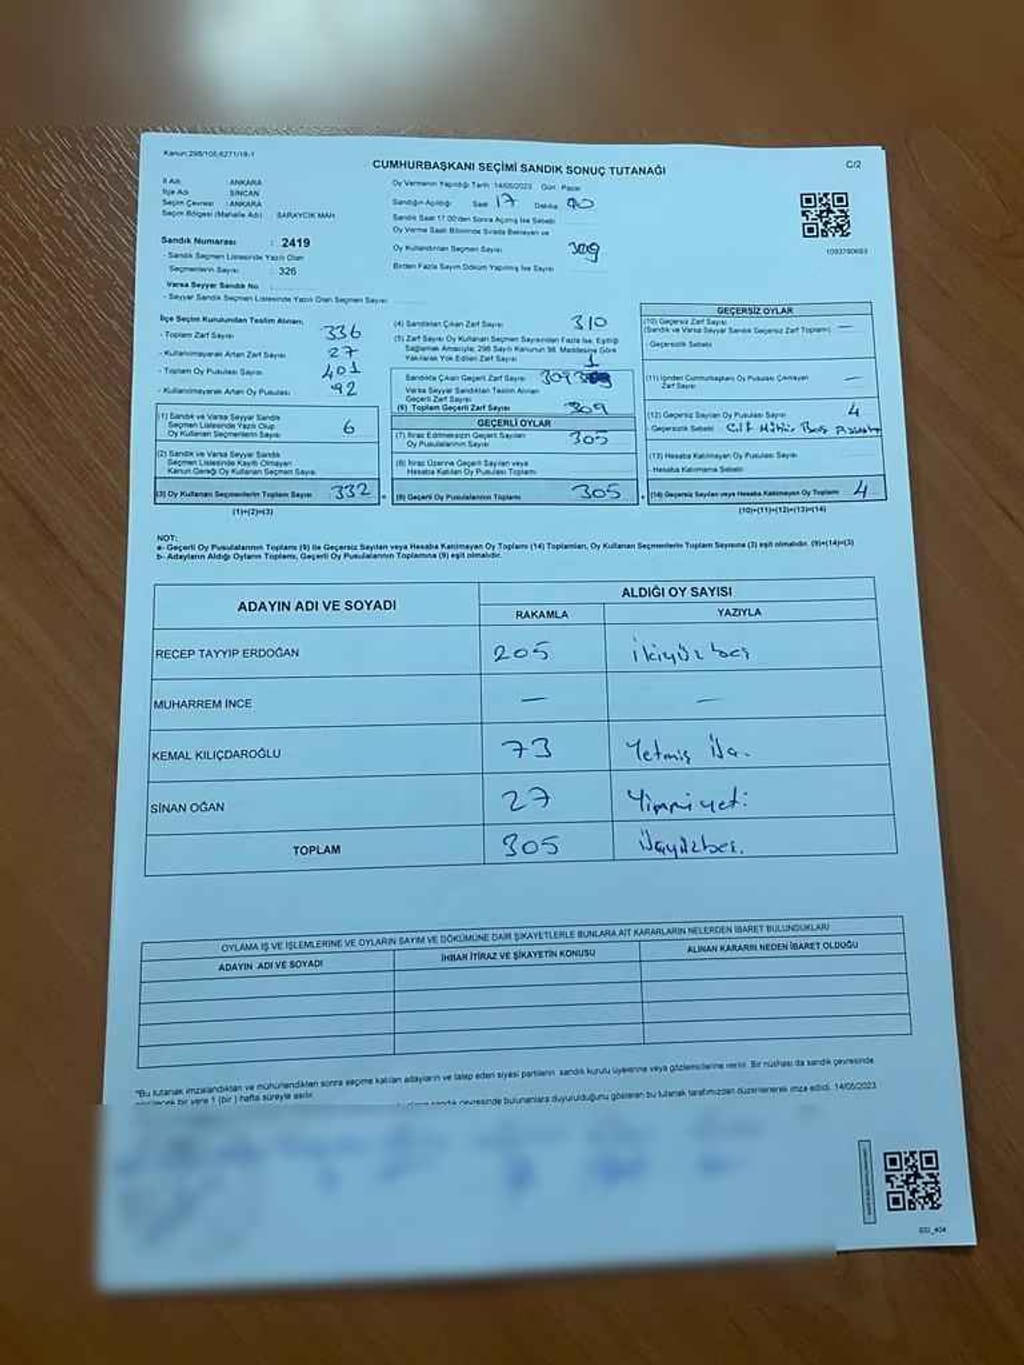 Kanun:298/105,6271/19-1
CUMHURBAŞKANI SEÇİMİ SANDIK SONUÇ TUTANAĞI
C/2
İl Adı : ANKARA
İlçe Adı : SİNCAN
Seçim Çevresi : ANKARA
Seçim Bölgesi (Mahalle Adı) : SARAYCIK MAH
Sandık Numarası : 2419
- Sandık Seçmen Listesinde Yazılı Olan
Seçmenlerin Sayısı : 326
Varsa Seyyar Sandık No :
- Seyyar Sandık Seçmen Listesinde Yazılı Olan Seçmen Sayısı
Oy Vermenin Yapıldığı Tarih :14/05/2023 Gün : Pazar
Sandığın Açıldığı Saat 17 Dakika
Sandık Saat 17.00'den Sonra Açılmış İse Sebebi
Oy Verme Saati Bitiminde Sırada Bekleyen ve
Oy Kullandırılan Seçmen Sayısı 309
Birden Fazla Sayım Döküm Yapılmış İse Sayısı
1093790693
İlçe Seçim Kurulundan Teslim Alınan;
- Toplam Zarf Sayısı 336
- Kullanılmayarak Artan Zarf Sayısı 27
- Toplam Oy Pusulası Sayısı 401
- Kullanılmayarak Artan Oy Pusulası 92
(1) Sandık ve Varsa Seyyar Sandık
Seçmen Listesinde Yazılı Olup
Oy Kullanan Seçmenlerin Sayısı 6
(2) Sandık ve Varsa Seyyar Sandık
Seçmen Listesinde Kayıtlı Olmayan
Kanun Gereği Oy Kullanan Seçmen Sayısı
(3) Oy Kullanan Seçmenlerin Toplam Sayısı 332
(1)+(2)=(3)
(4) Sandıktan Çıkan Zarf Sayısı 310
(5) Zarf Sayısı Oy Kullanan Seçmen Sayısından Fazla İse, Eşitliği
Sağlamak Amacıyla; 298 Sayılı Kanunun 98. Maddesine Göre
Yakılarak Yok Edilen Zarf Sayısı 1
Sandıkta Çıkan Geçerli Zarf Sayısı 309
Varsa Seyyar Sandıktan Teslim Alınan
Geçerli Zarf Sayısı
(6) Toplam Geçerli Zarf Sayısı 309
GEÇERLİ OYLAR
(7) İtiraz Edilmeksizin Geçerli Sayılan
Oy Pusulalarının Sayısı 305
(8) İtiraz Üzerine Geçerli Sayılan veya
Hesaba Katılan Oy Pusulası Toplamı
(9) Geçerli Oy Pusulalarının Toplamı 305
GEÇERSİZ OYLAR
(10) Geçersiz Zarf Sayısı
(Sandık ve Varsa Seyyar Sandık Geçersiz Zarf Toplamı) —
- Geçersizlik Sebebi
(11) İçinden Cumhurbaşkanı Oy Pusulası Çıkmayan
Zarf Sayısı —
(12) Geçersiz Sayılan Oy Pusulası Sayısı 4
- Geçersizlik Sebebi Çift Mühür Boş
(13) Hesaba Katılmayan Oy Pusulası Sayısı
- Hesaba Katılmama Sebebi
(14) Geçersiz Sayılan veya Hesaba Katılmayan Oy Toplamı 4
(10)+(11)+(12)+(13)=(14)
NOT:
a- Geçerli Oy Pusulalarının Toplamı (9) ile Geçersiz Sayılan veya Hesaba Katılmayan Oy Toplamı (14) Toplamları, Oy Kullanan Seçmenlerin Toplam Sayısına (3) eşit olmalıdır. (9)+(14)=(3)
b- Adayların Aldığı Oyların Toplamı, Geçerli Oy Pusulalarının Toplamına (9) eşit olmalıdır.
ADAYIN ADI VE SOYADI
ALDIĞI OY SAYISI
RAKAMLA YAZIYLA
RECEP TAYYIP ERDOĞAN 205 ikiyüzbeş
MUHARREM İNCE — —
KEMAL KILIÇDAROĞLU 73 Yetmiş üç.
SİNAN OĞAN 27 Yirmiyedi
TOPLAM 305 üçyüzbeş.
OYLAMA İŞ VE İŞLEMLERİNE VE OYLARIN SAYIM VE DÖKÜMÜNE DAİR ŞİKAYETLERLE BUNLARA AİT KARARLARIN NELERDEN İBARET BULUNDUKLARI
ADAYIN ADI VE SOYADI İHBAR İTİRAZ VE ŞİKAYETİN KONUSU ALINAN KARARIN NEDEN İBARET OLDUĞU
"Bu tutanak imzalandıktan ve mühürlendikten sonra seçime katılan adayların ve talep eden siyasi partilerin sandık kurulu üyelerine veya gözlemcilerine verilir. Bir nüshası da sandık çevresinde
bir yere 1 (bir ) hafta süreyle asılır.
sandık çevresinde bulunanlara duyurulduğunu gösteren bu tutanak tarafımızdan düzenlenerek imza edildi. 14/05/2023